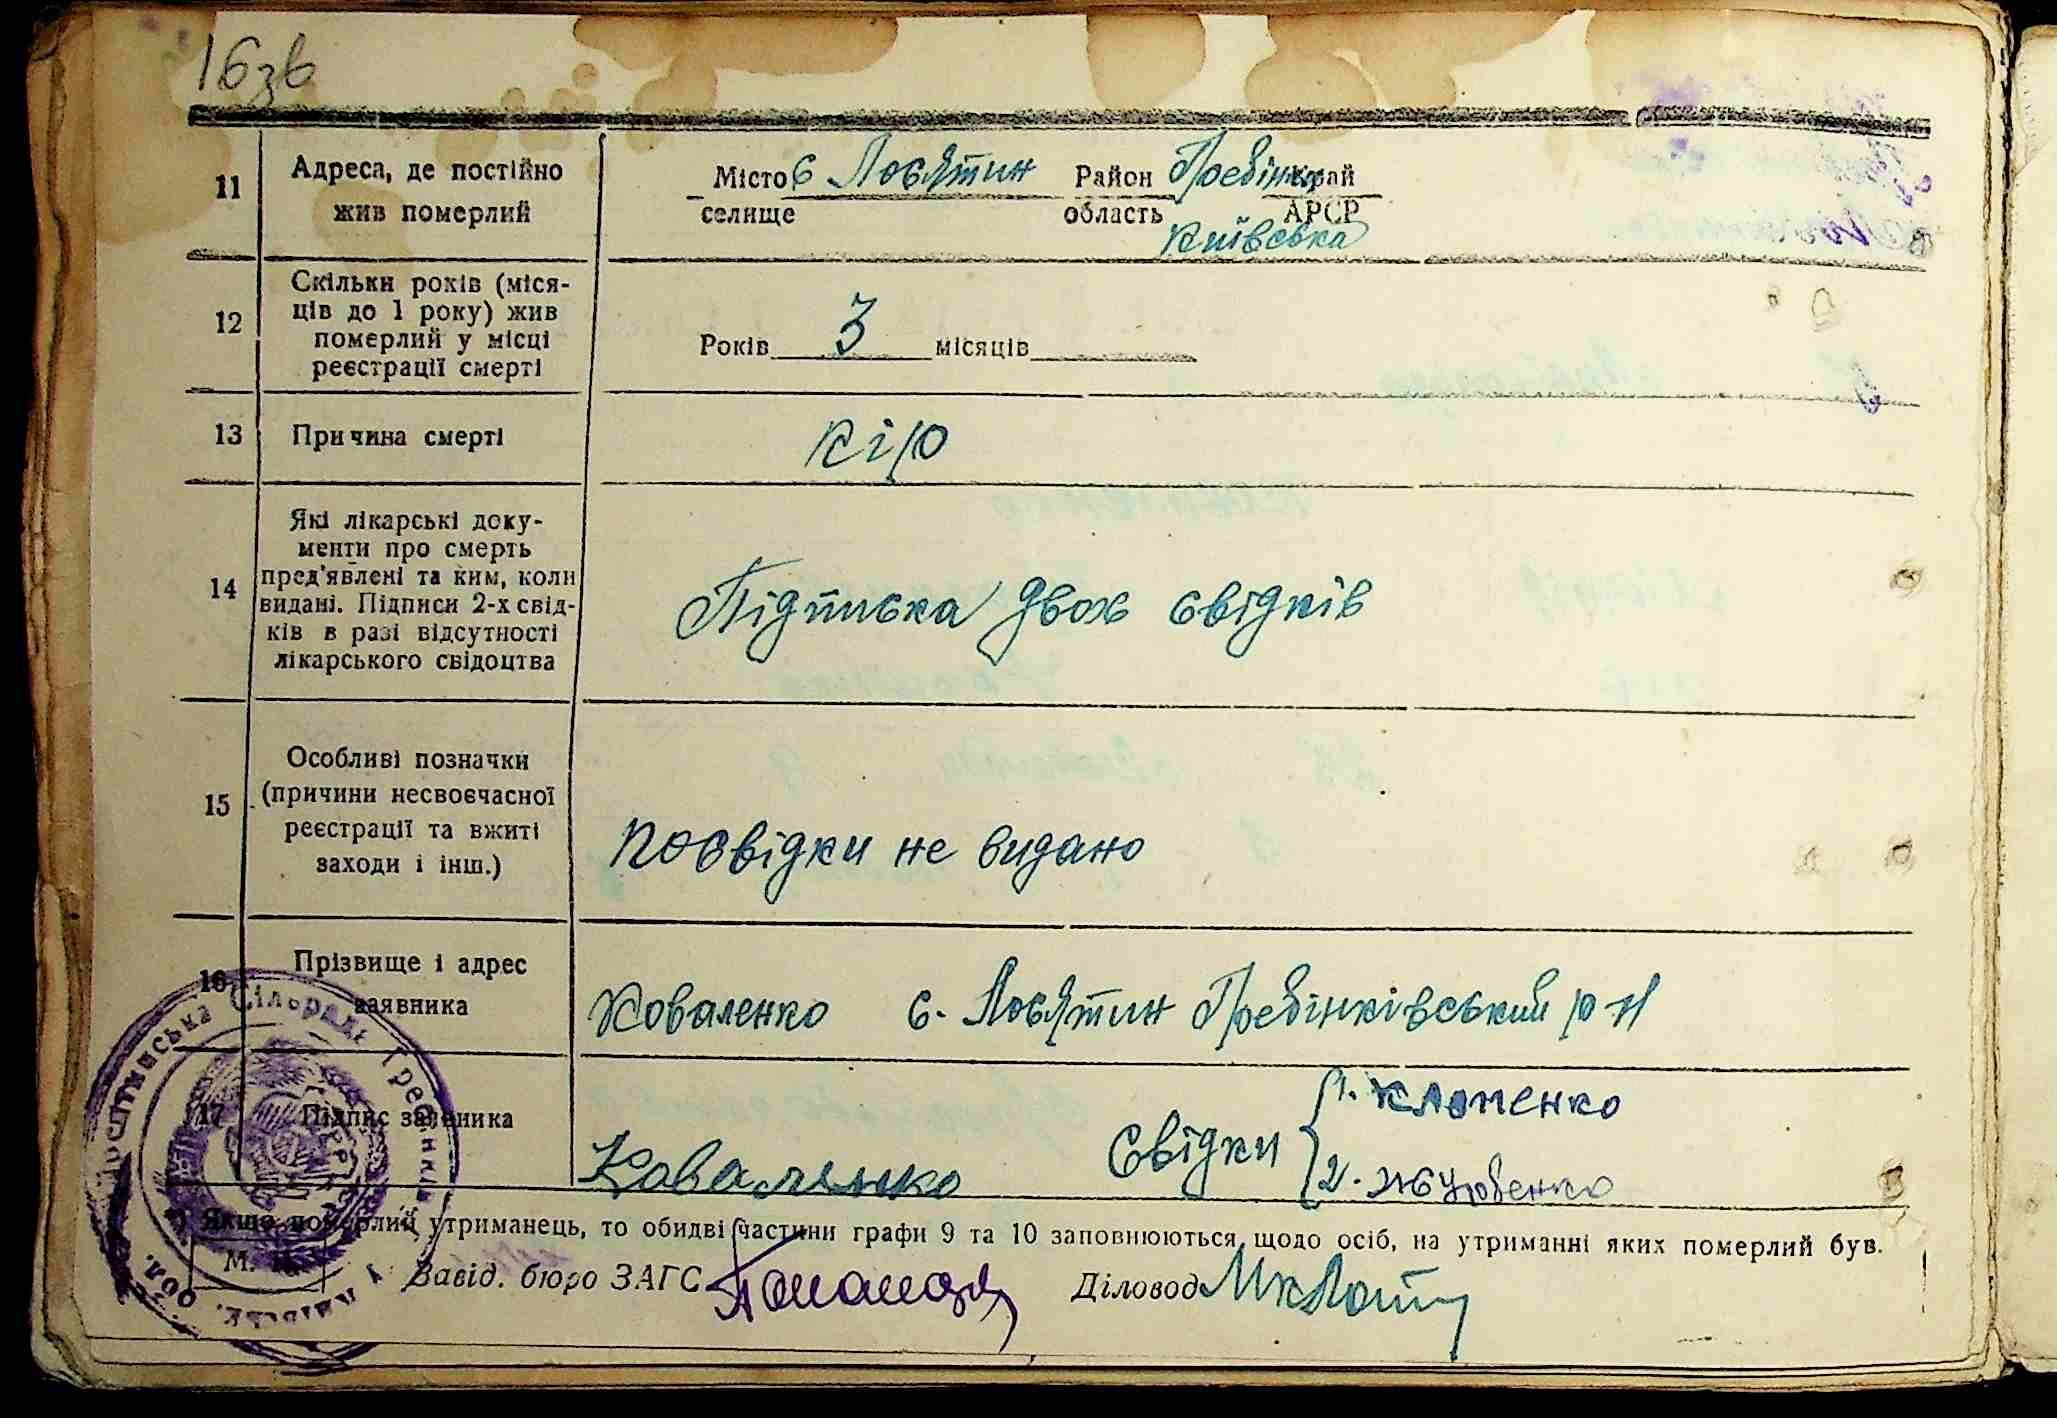 16зв
11 Адреса, де постійно жив померлий
Місто с Лосятин Район Гребінки край
селище область АРСР
Київська
12 Скільки років (міся-
ців до 1 року) жив
померлий у місці
реєстрації смерті
Років 3 місяців
13 Причина смерті
кір
14 Які лікарські доку-
менти про смерть
пред'явлені та ким, коли
видані. Підписи 2-х свід-
ків в разі відсутності
лікарського свідоцтва
Підписка двох свідків
15 Особливі позначки
(причини несвоєчасної
реєстрації та вжиті
заходи і інш.)
посвідки не видано
16 Прізвище і адрес
заявника
Коваленко с. Лосятин Гребінківський р-н
17 Підпис заявника
Коваленко Свідки 1. Клименко
2. Журбенко
Якщо померлий утриманець, то обидві частини графи 9 та 10 заповнюються щодо осіб, на утриманні яких померлий був.
М. П.
Завід. бюро ЗАГС Діловод
Сільрада